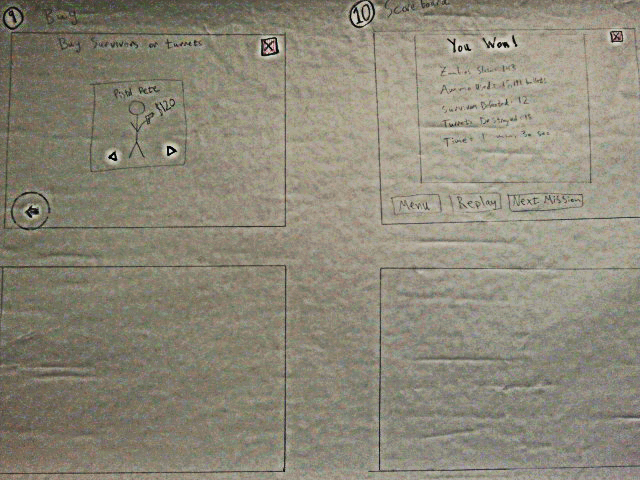 9 Buy
Buy Survivors or turrets
Pistol Pete
$120
10 Score board
You Won!
Zombies Slain: 143
Ammo Used: bullets
Survivors Defeated: 12
Turrets Destroyed:
Time: 1 min, 30 sec
Menu Replay Next Mission